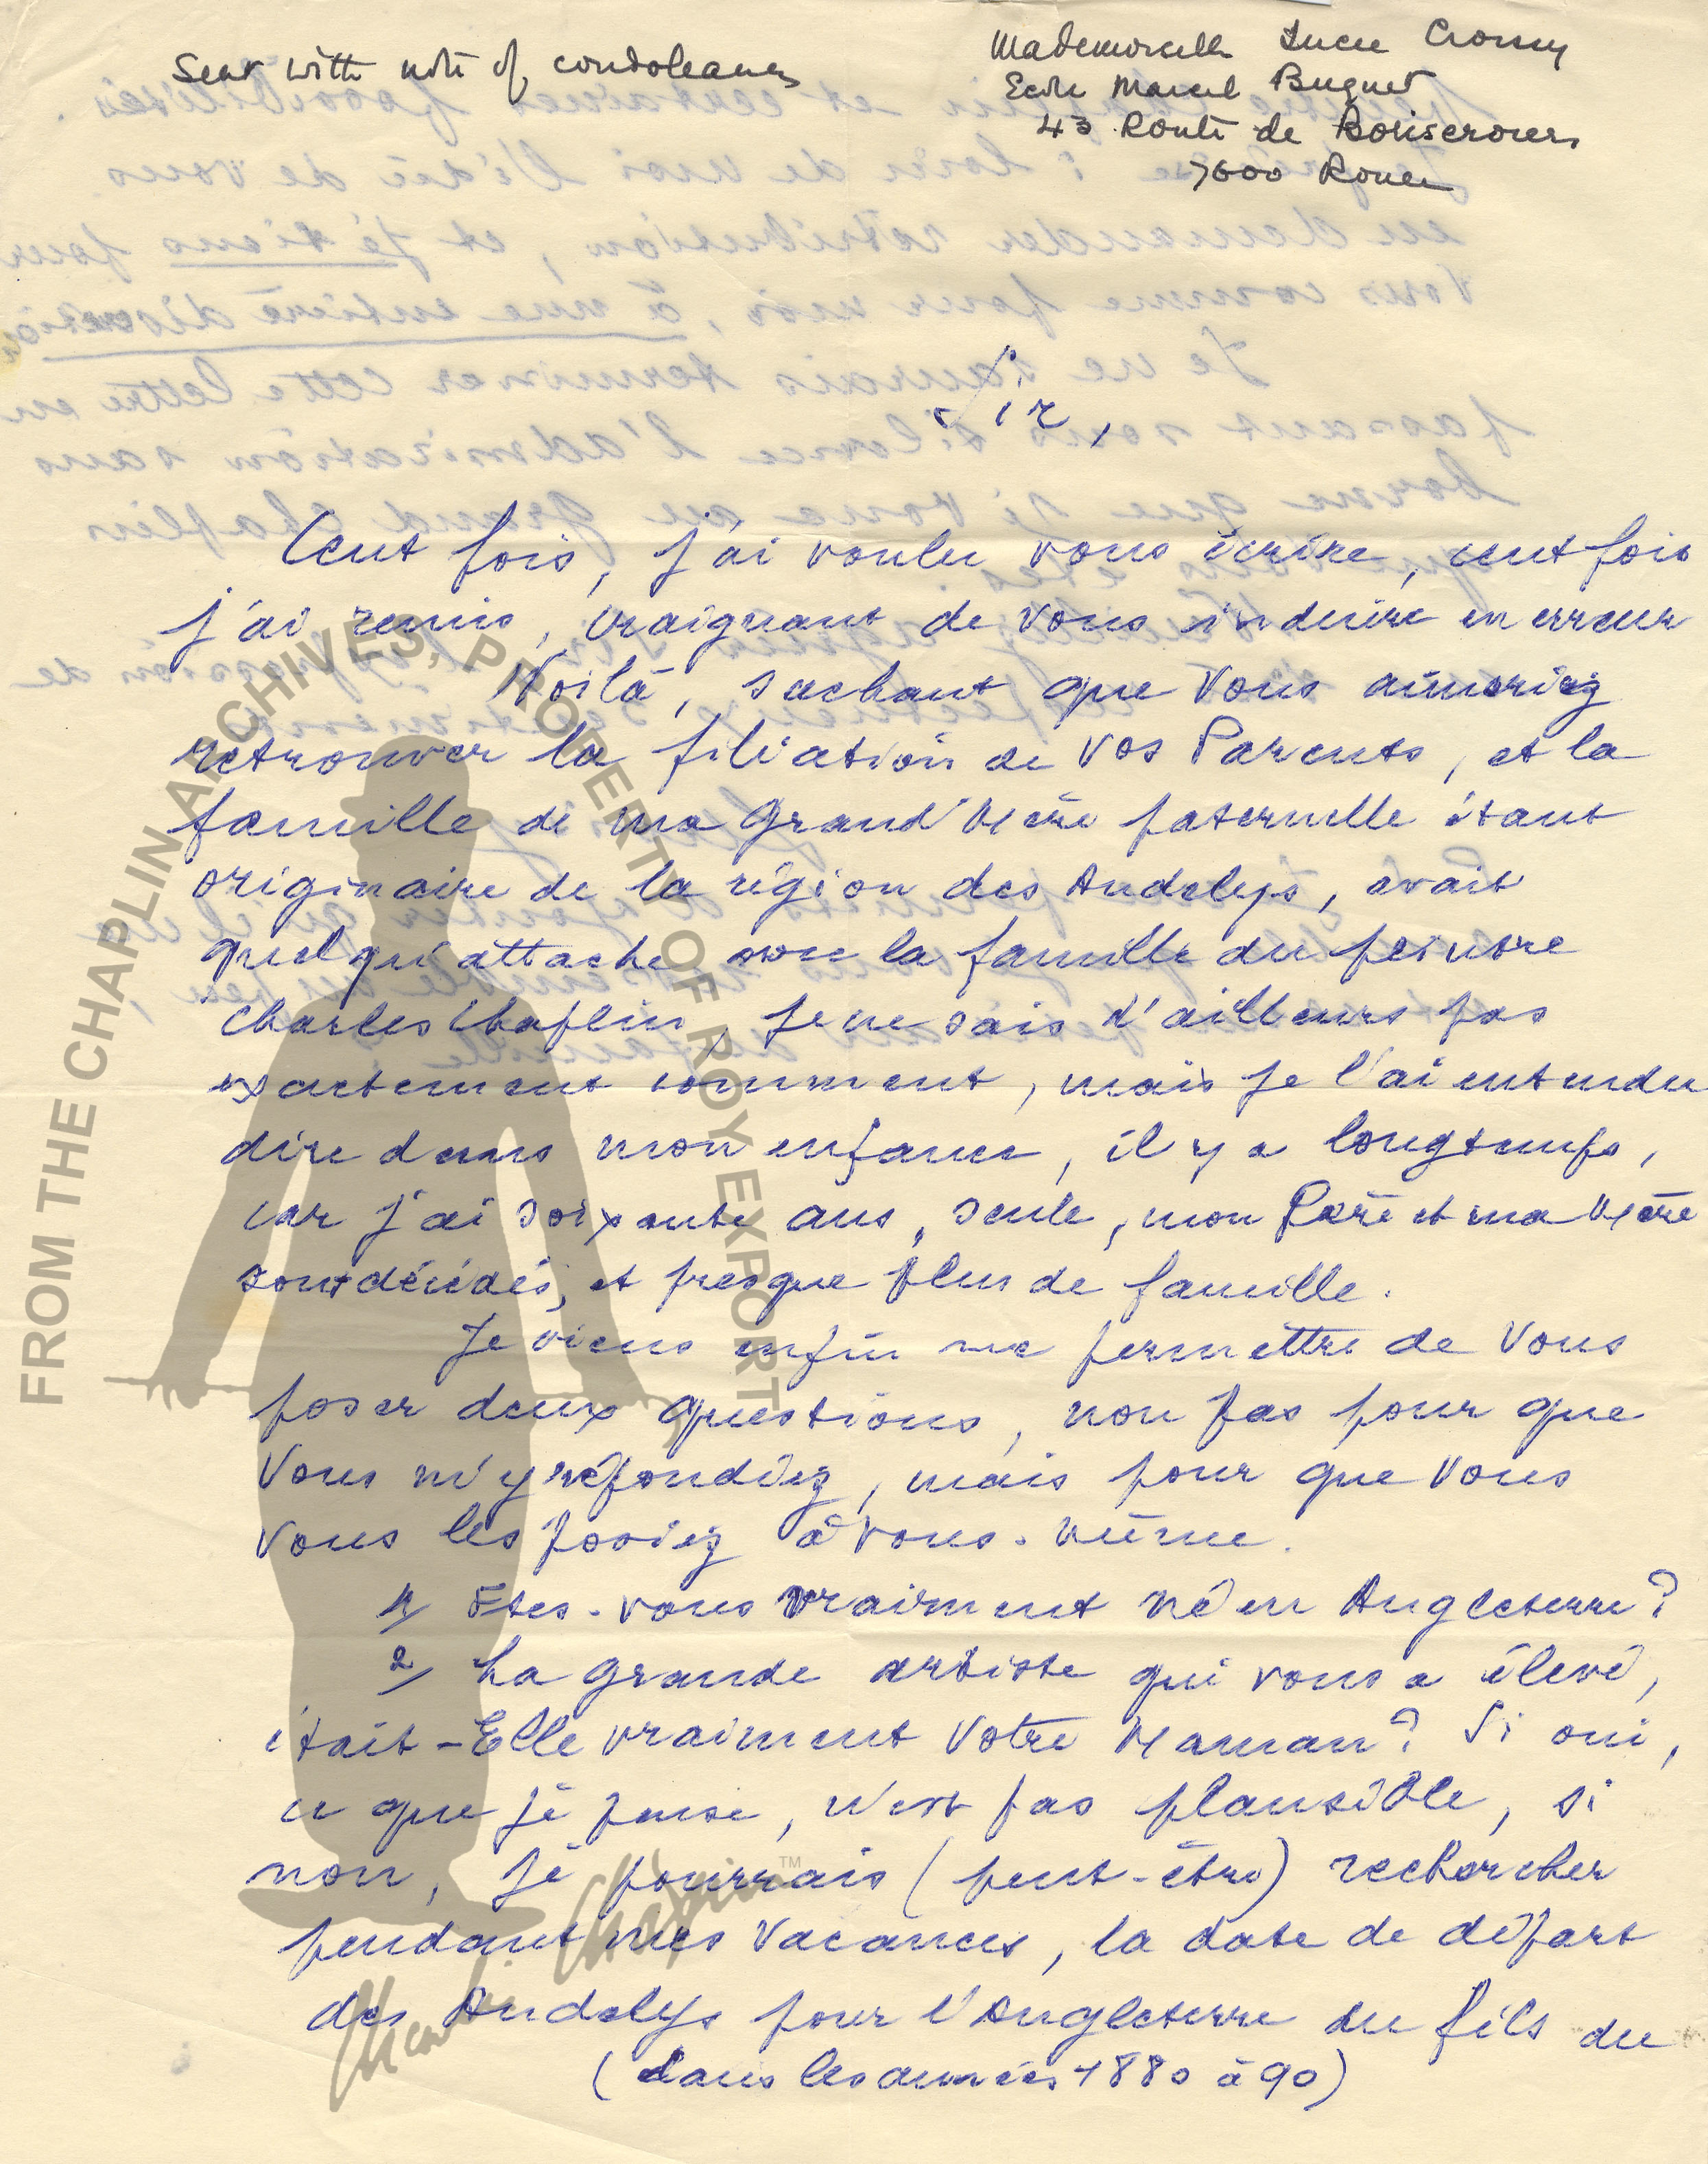 Sent with note of condoleances
Mademoiselle Lucie
Ecole Marcel Buquet
43 Route de
7600 Rouen
Sir,
Cent fois, j'ai voulu vous écrire, cent fois
j'ai remis, craignant de vous induire en erreur
Voilà, sachant que vous aimeriez
retrouver la filiation de vos Parents, et la
famille de ma Grand'Mère paternelle étant
originaire de la région des Andelys, avait
quelqu'attache avec la famille du peintre
Charles Chaplin, je ne sais d'ailleurs pas
exactement comment, mais je l'ai entendu
dire dans mon enfance, il y a longtemps,
car j'ai soixante ans, seule, mon Père et ma Mère
sont décédés, et presque plus de famille.
Je viens enfin me permettre de Vous
poser deux questions, non pas pour que
Vous m'y répondiez, mais pour que Vous
Vous les posiez à vous-même.
1/ Etes-vous vraiment né en Angleterre?
2/ La grande artiste qui vous a élevé,
était-Elle vraiment Votre Maman? Si oui,
ce que je pense, n'est pas plausible, si
non, je pourrais (peut-être) rechercher
pendant mes Vacances, la date de départ
des Andelys pour l'Angleterre du fils du
(dans les années 1880 à 90)
FROM THE CHAPLIN ARCHIVES, PROPERTY OF ROY EXPORT
Charlie Chaplin™